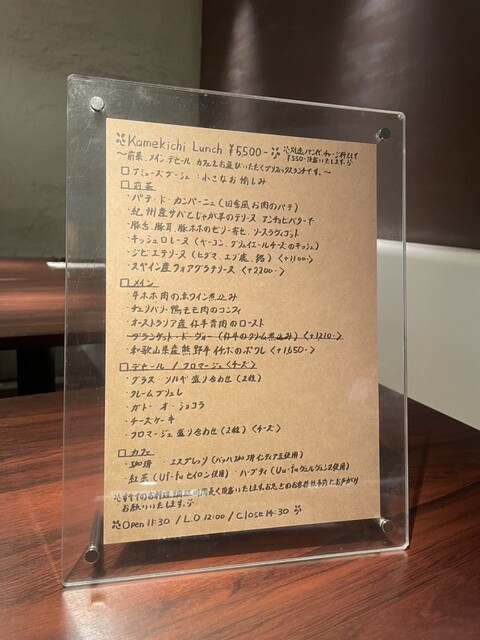 Kamekichi Lunch ¥5,500- ※別途アンガ、チャージ料として
¥550-頂戴いたします。
～前菜、メイン、デセール、カフェをお選びいただくプリフィックスランチです。～
□アミューズ・グーシュ:小さなお愉しみ
□前菜
・パテ・ド・カンパーニュ(田舎風お肉のパテ)
・紀州産サバとじゃが芋のテリーヌ アンチョビバター
・豚舌、豚耳、豚ホホのゼリー寄せ、ソースラヴィゴット
・キッシュロレーヌ(ベーコン、グリュイエールチーズのキッシュ)
・ジビエテリーヌ(ヒグマ、エゾ鹿、猪)<+1100->
・スペイン産フォアグラテリーヌ <+2200->
□メイン
・牛ホホ肉の赤ワイン煮込み
・チェリバリー鴨もも肉のコンフィ
・オーストラリア産 仔羊背肉のロースト
・ブランケット・ド・ヴォー(仔牛のクリーム煮込み)<+1210->
・和歌山県産熊野牛イチボのポワレ <+1650->
□デセール / フロマージュ<チーズ>
・グラス・ソルベ盛り合わせ(2種)
・クレームブリュレ
・ガトー・オ・ショコラ
・チーズケーキ
・フロマージュ盛り合わせ(2種)<チーズ>
□カフェ
・珈琲 ・エスプレッソ(バッハ珈琲インディア豆使用)
・紅茶(Uf-fuセイロン使用) ・ハーブティ(Uf-fuヴェルヴェンヌ使用)
お願いいたします。
Open 11:30 / L.O 12:00 / Close 14:30